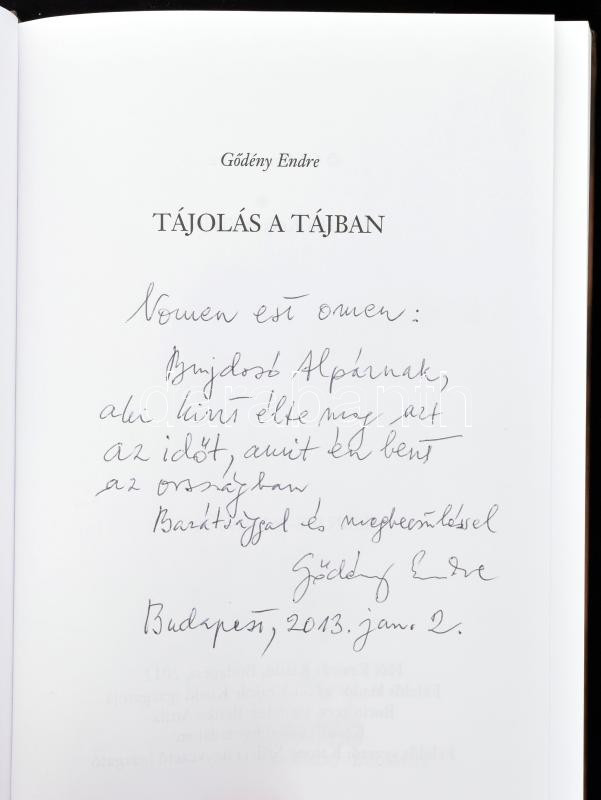 Gődény Endre
TÁJOLÁS A TÁJBAN
Nomen est omen:
Bujdosó Alpárnak,
aki kint élte meg azt
az időt, amit én bent
az országban
Barátsággal és megbecsüléssel
Gődény Endre
Budapest, 2013. jan. 2.
darabanth